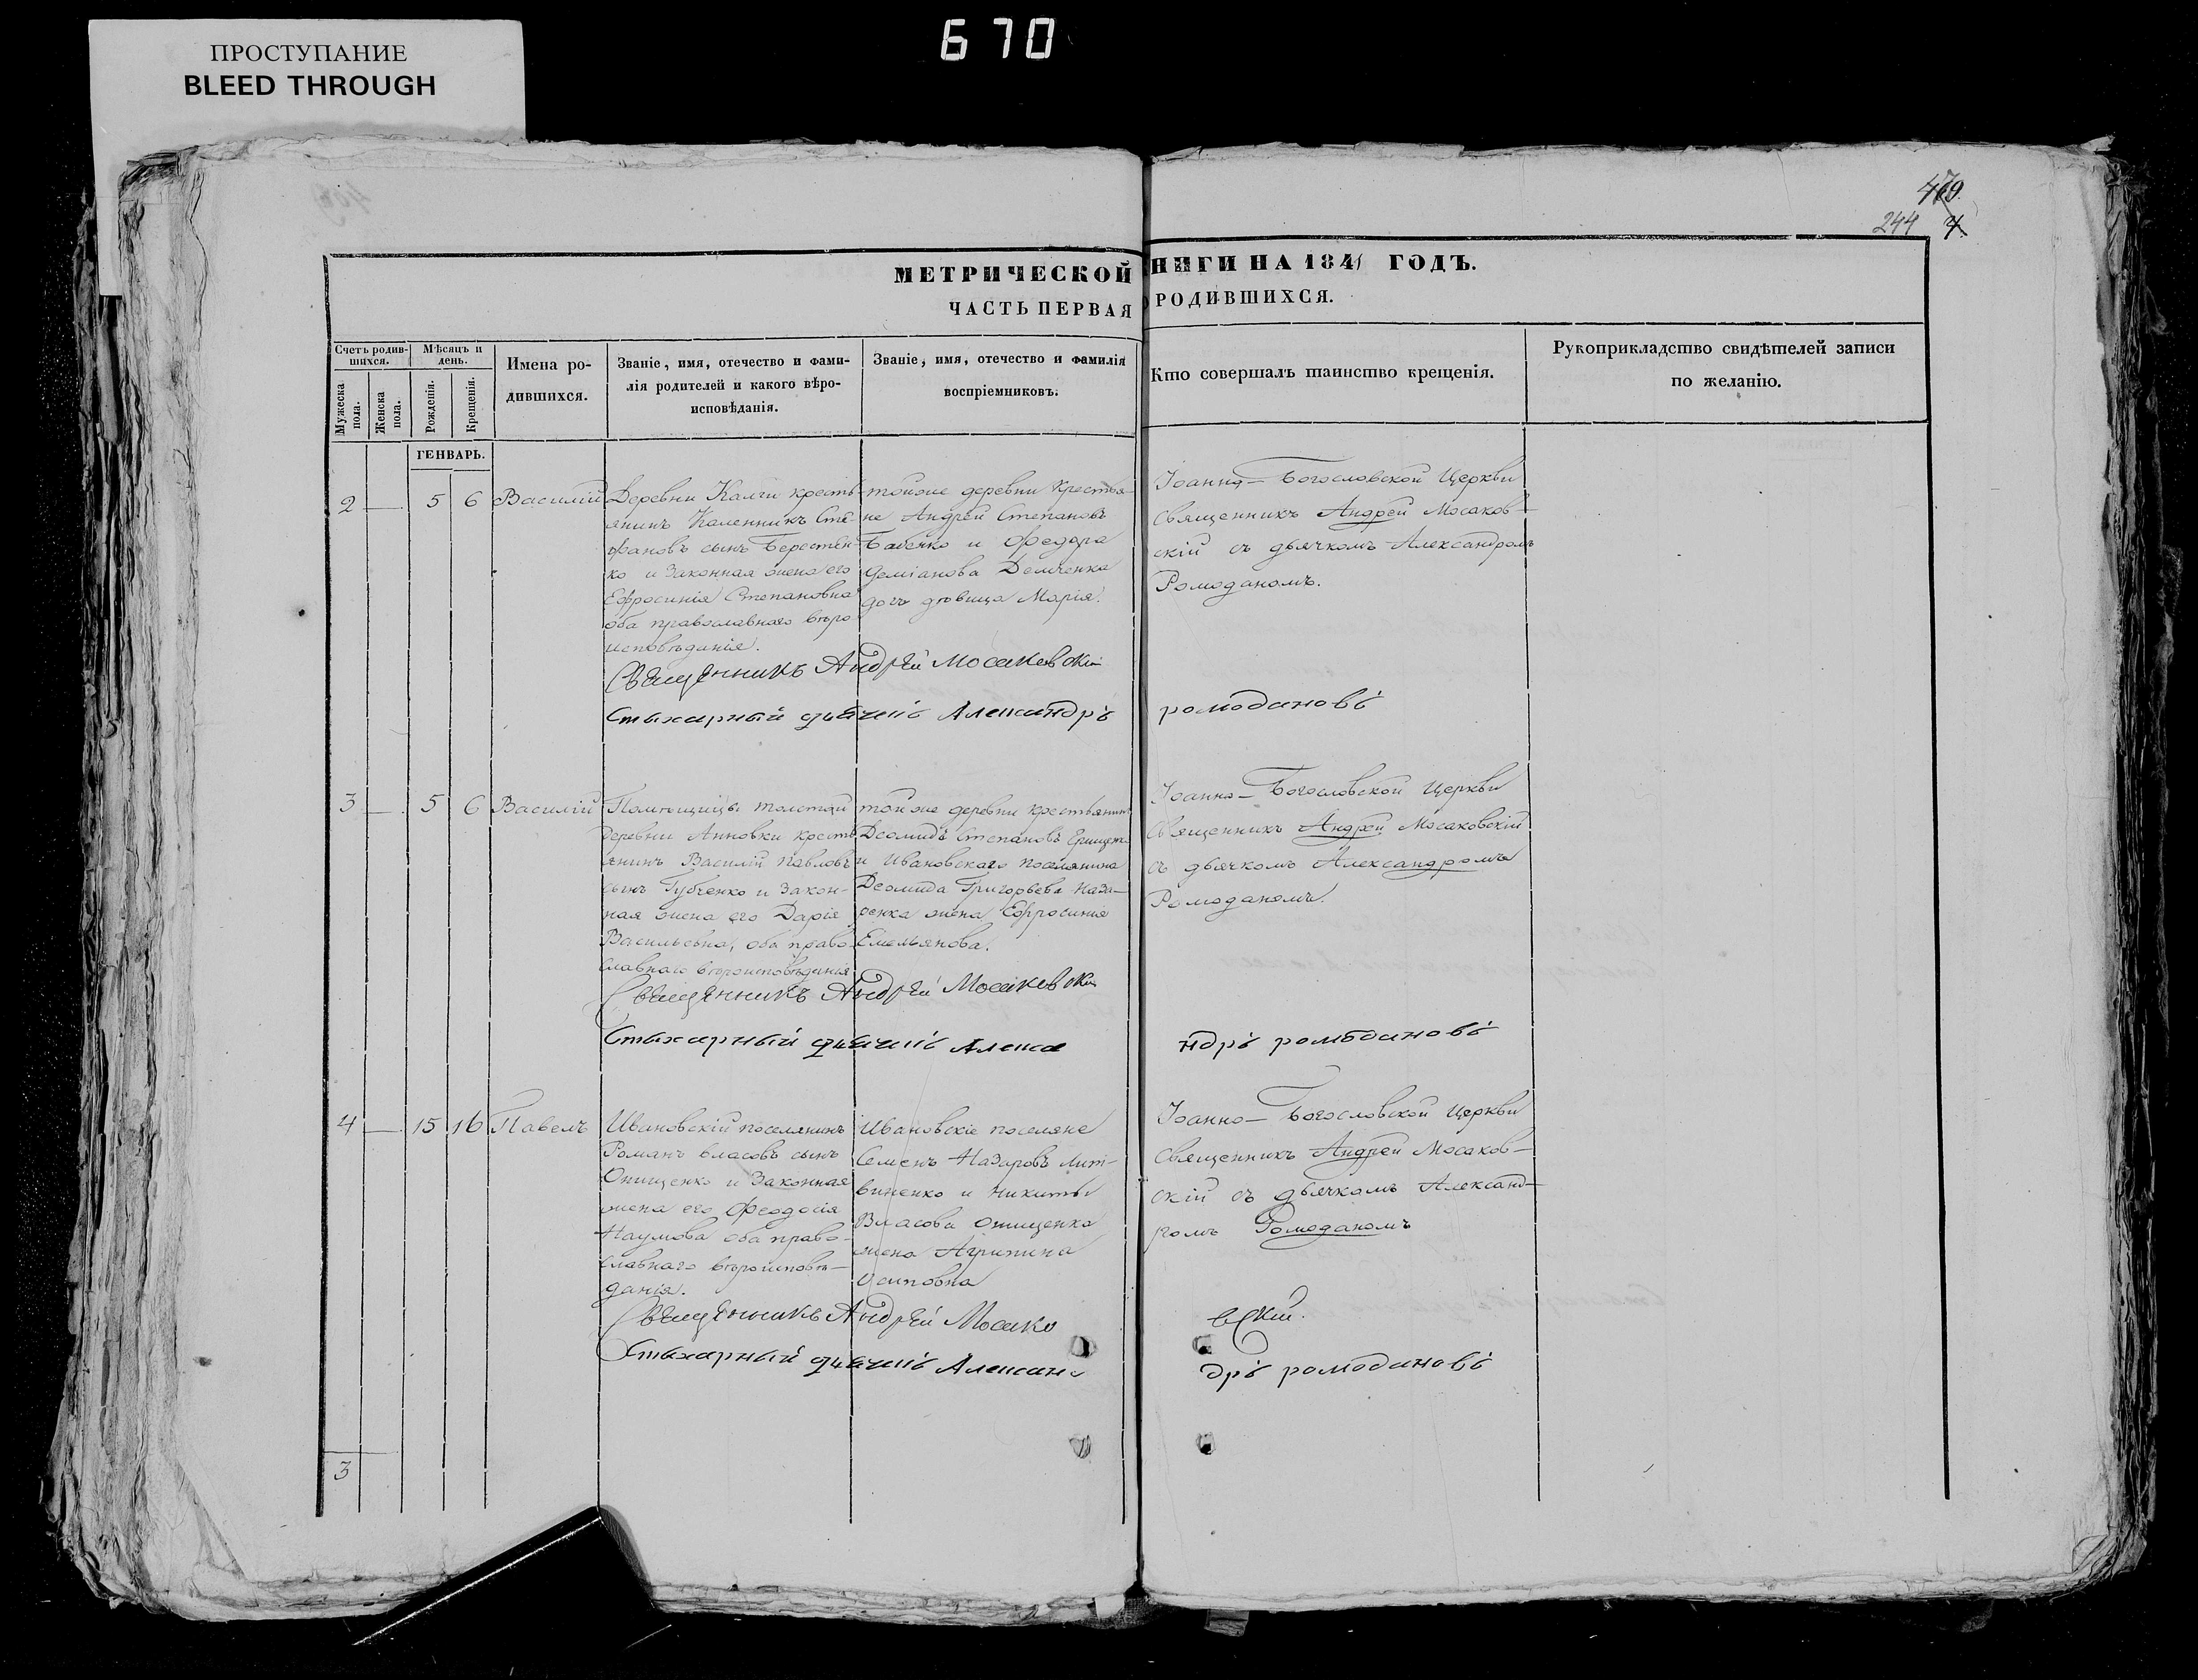 670
ПРОСТУПАНИЕ
BLEED THROUGH
244
МЕТРИЧЕСКОЙ НИГИ НА 1841 ГОДЪ.
ЧАСТЬ ПЕРВАЯ О РОДИВШИХСЯ.
Счетъ родившихся.
Мужеска пола.
Женска пола.
Мѣсяцъ и день.
Рожденія.
Крещенія.
Имена родившихся.
Званіе, имя, отечество и фамилія родителей и какого вѣроисповѣданія.
Званіе, имя, отечество и фамилія воспріемниковъ.
Кто совершалъ таинство крещенія.
Рукоприкладство свидѣтелей записи по желанію.
ГЕНВАРЬ.
2 — 5 6 Василій
Деревни Калги кресть-
янинъ Каленникъ Сте-
фановъ сынъ Берестен-
ко и Законная жена его
Ефросинія Степановна
оба православнаго вѣро
исповѣданія.
тойже деревни крестья-
не Андрей Степановъ
Бабенко и Федора
Деміанова Демченка
дочь дѣвица Марія.
Іоанно-Богословской Церкви
священникъ Андрей Мосаков-
скій съ дьячкомъ Александромъ
Ромоданомъ.
Священникъ Андрей Мосаковскій
Стихарный дьячокъ Александръ ромодановъ
3 — 5 6 Василій
Помѣщицы толстой
деревни Анновки кресть
янинъ Василій Павловъ
сынъ Губченко и Закон-
ная жена его Дарія
Васильевна, оба право-
славнаго вѣроисповѣданія
той же деревни крестьянинъ
Деомидъ Степановъ
и Ивановскаго поселянина
Деомида Григорьева Наза-
ренка жена Ефросинія
Емельянова.
Іоанно-Богословской Церкви
Священникъ Андрей Мосаковскій
съ дьячкомъ Александромъ
Ромоданомъ.
Священникъ Андрей Мосаковскій
Стихарный дьячокъ Александръ ромодановъ
4 — 15 16 Павелъ
Ивановскій поселянинъ
Романъ Власовъ сынъ
Онищенко и Законная
жена его Феодосія
Наумова оба право-
славнаго вѣроисповѣ-
данія.
Ивановскіе поселяне
Семенъ Назаровъ Лит-
виненко и Никиты
Власова Онищенка
жена Агрипина
Осиповна
Іоанно-Богословской Церкви
Священникъ Андрей Мосаков-
скій съ дьячкомъ Александ-
ромъ Ромоданомъ
Священникъ Андрей Мосаковскій.
Стихарный дьячокъ Александръ ромодановъ
3